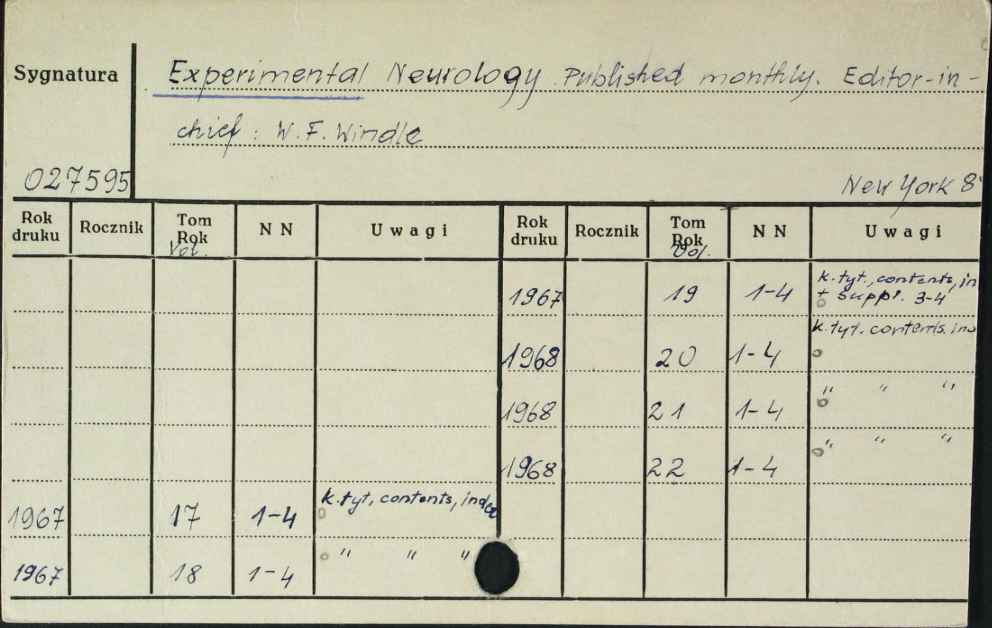 Sygnatura
Experimental Neurology. Published monthly. Editor-in-
chief: W. F. Windle
027595
New York 8°
Rok druku Rocznik Tom Rok Vol. N N Uwagi Rok druku Rocznik Tom Rok Vol. N N Uwagi
1967 19 1-4 k. tyt., contents, in
+ suppl. 3-4
k. tyt. contents. ind
1968 20 1-4
1968 21 1-4 " " "
1968 22 1-4 " " "
1967 17 1-4 k. tyt, contents, index
1967 18 1-4 " " "